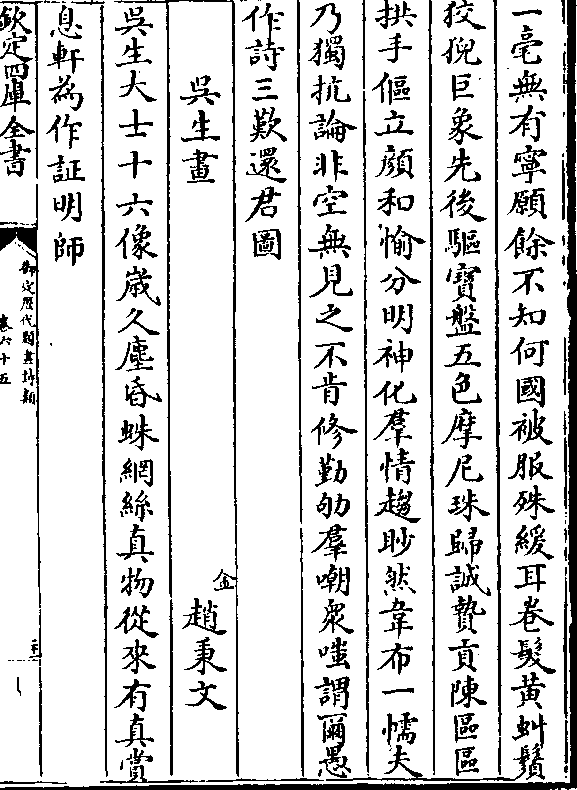 一毫無有寧願餘不知何國被服殊緩耳卷髮黄虬鬚
狡猊巨象先後驅寶盤五色摩尼珠歸誠贄貢陳區區
拱手傴立顔和愉分明神化羣情趨眇然韋布一懦夫
乃獨抗論非空無見之不肯修勤劬羣嘲衆嗤謂爾愚
作詩三歎還君圖
吳生畫
金 趙秉文
吳生大士十六像歲久塵昏蛛網絲真物從來有真賞
息軒為作証明師
欽定四庫全書
御定歷代題畫詩類
卷六十五